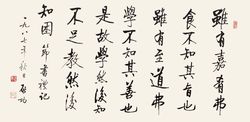 雖有嘉肴弗
食不知其旨也
雖有至道弗
學不知其善也
是故學然後知
不足教然後
知困 節書禮記
一九八七年秋日 啟功